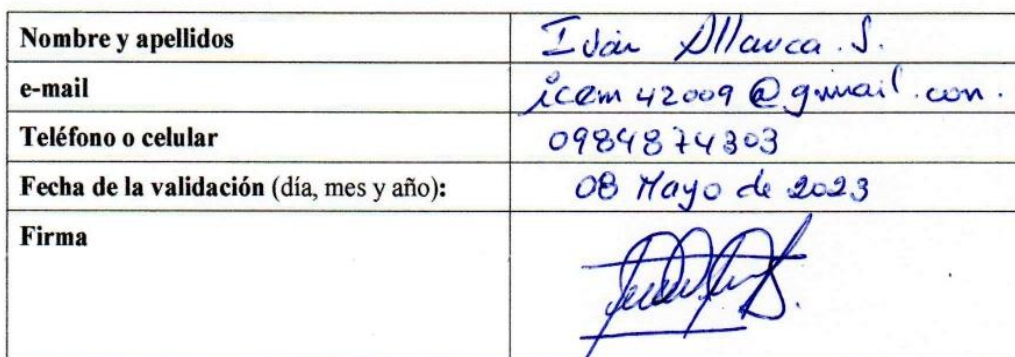 Nombre y apellidos Iván Allauca. S.
e-mail icam42009@gmail.com.
Teléfono o celular 0984874303
Fecha de la validación (día, mes y año): 08 Mayo de 2023
Firma